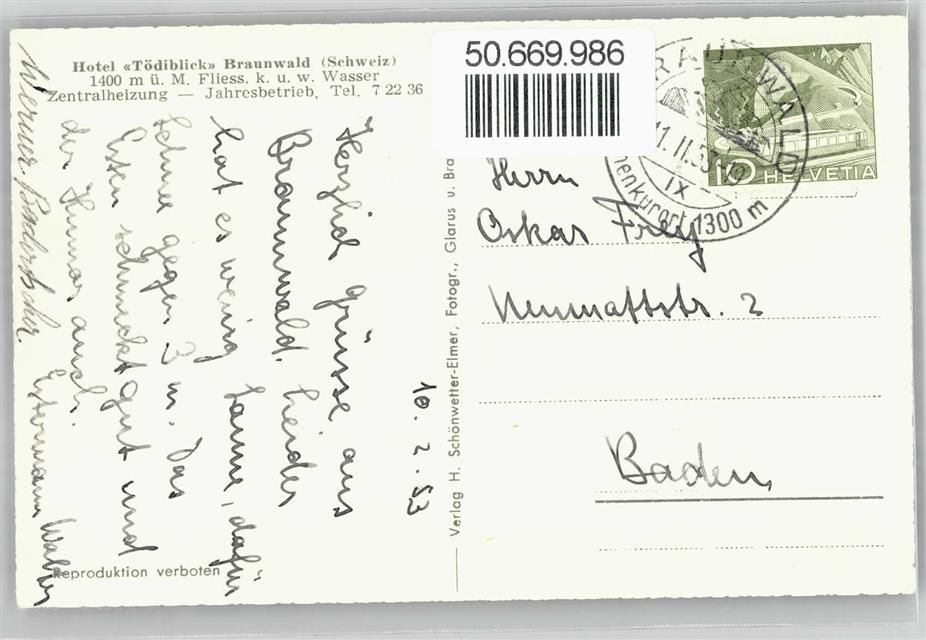 Hotel «Tödiblick» Braunwald (Schweiz)
1400 m ü. M. Fliess. k. u. w. Wasser
Zentralheizung — Jahresbetrieb, Tel. 7 22 36
10. 2. 53
Herzlich Grüsse aus
Braunwald. Leider
hat es wenig Sonne, dafür
Schnee gegen 3 m. Das
Essen schmeckt gut und
der Humor auch.
Estermann Walter
Werner
Reproduktion verboten
Verlag H. Schönwetter-Elmer, Fotogr., Glarus u. Bra
50.669.986
BRAUNWALD
11. II. 53
IX
1300 m
10 HELVETIA
Herrn
Oskar Frey
Neumattstr. 2
Baden